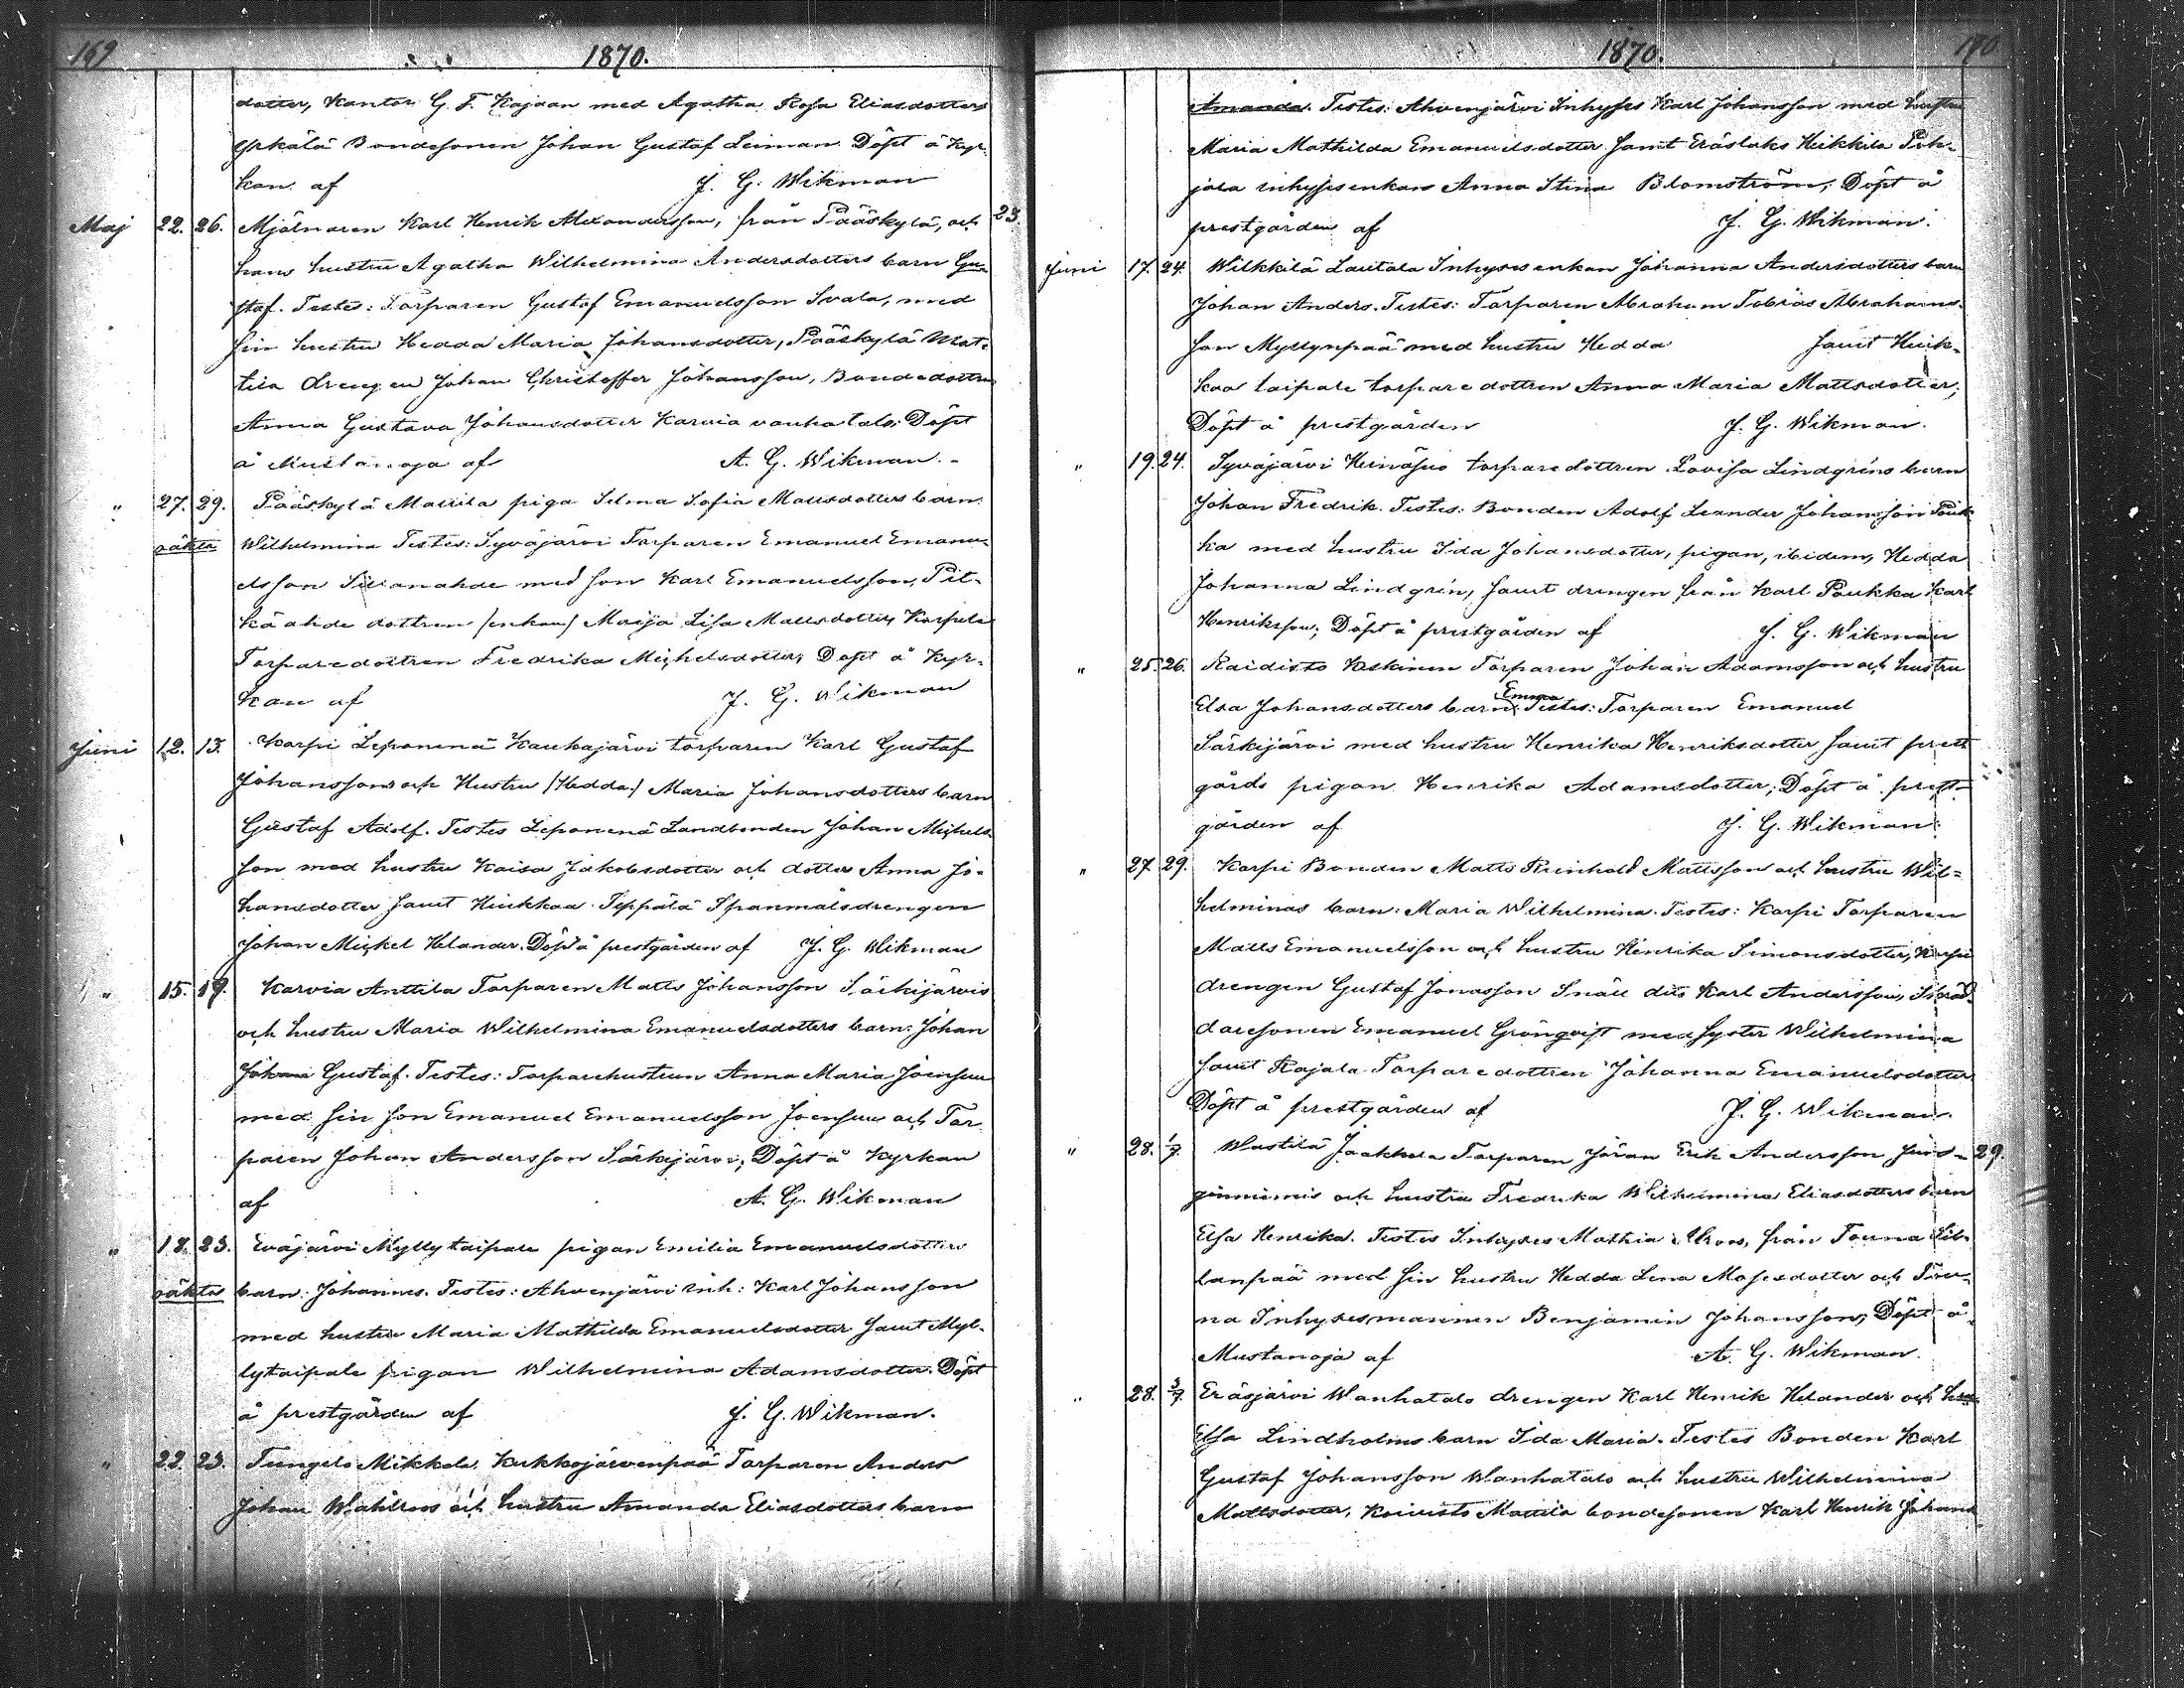 169
1870.
dotter, Kantor G. F. Kajaan med Agatha Rosa Eliasdotter
Yrkälä Bondesonen Johan Gustaf Leiman. Döpt å Kyr-
kan af J. G. Wikman
Maj 22. 26. Mjölnaren Karl Henrik Alexandersson, från Pääskylä, och 23.
hans hustru Agatha Wilhelmina Andersdotters barn Gu-
staf. Testes: Torparen Gustaf Emanuelsson Svala, med
sin hustru Hedda Maria Johansdotter, Pääskylä Mat-
tila drengen Johan Christoffer Johansson, Bondedottren
Anna Gustava Johansdotter Karvia vanhatalo; Döpt
å Mustanoja af A. G. Wikman.
" 27. 29. Pääskylä Mattila piga Selma Sofia Mattsdotters barn
oäkta Wilhelmina Testes: Syväjärvi Torparen Emanuel Emanu-
elsson med son Karl Emanuelsson, Pit-
käahde dottren /enkan/ Maija Lisa Mattsdotter, Karpela
Torparedottren Fredrika Michelsdotter; Döpt å Kyr-
kan af J. G. Wikman
Juni 12. 13. Karpi Leponenä Kaukajärvi torparen Karl Gustaf
Johanssons och Hustru /Hedda/ Maria Johansdotters barn
Gustaf Adolf. Testes Leponenä Landbonden Johan Michels-
son med hustru Kaisa Jakobsdotter och dotter Anna Jo-
hansdotter samt Heikkaa Seppälä Spanmålsdrengen
Johan Mickel Helander. Döpt å prestgården af J. G. Wikman
" 15. 19. Karvia Anttila Torparen Matts Johansson Särkijärvis
och hustru Maria Wilhelmina Emanuelsdotters barn: Johan
Johan Gustaf. Testes: Torparehustrun Anna Maria Joensuu
med sin son Emanuel Emanuelsson Joensuu och Tor
paren Johan Andersson Särkijärvi; Döpt å Kyrkan
af A. G. Wikman
" 18. 23. Eväjärvi Myllytaipale pigan Emilia Emanuelsdotters
oäkta barn: Johannes. Testes: Ahvenjärvi inh: Karl Johansson
med hustru Maria Mathilda Emanuelsdotter samt Myl-
lytaipale pigan Wilhelmina Adamsdotter. Döpt
å prestgården af J. G. Wikman.
" 22. 23. Tungelo Mikkola Kukkojärvenpää Torparen Anders
Johan Wahlroos och hustru Amanda Eliasdotters barn
1870.
170
Amanda. Testes: Ahvenjärvi Inhyses Karl Johansson med hustru
Maria Mathilda Emanuelsdotter samt Eräslaks Heikkilä Poh-
jola inhysesenkan Anna Stina Blomström; Döpt å
prestgården af J. G. Wikman.
Juni 17. 24. Wilkkilä Lautala Inhysesenkan Johanna Andersdotters barn
Johan Anders. Testes: Torparen Abraham Tobias Abrahams-
son Myllynpää med hustru Hedda samt Heik-
kaa taipale torparedottren Anna Maria Mattsdotter,
Döpt å prestgården J. G. Wikman.
" 19. 24. Syväjärvi Heinäsuo torparedottren Lovisa Lindgréns barn
Johan Fredrik. Testes: Bonden Adolf Leander Johansson Pouk-
ka med hustru Ida Johansdotter, pigan, ibidem, Hedda
Johanna Lindgrén, samt drengen från Karl Poukka Karl
Henriksson; Döpt å prestgården af J. G. Wikman
" 25. 26. Raidisto Koskinen Torparen Johan Adamsson och hustru
Elsa Johansdotters barn Emma Testes: Torparen Emanuel
Särkijärvi med hustru Henrika Henriksdotter samt prest
gårds pigan Henrika Adamsdotter; Döpt å prest-
gården af J. G. Wikman.
" 27. 29. Karpi Bonden Matts Reinhold Mattsson och hustru Wil=
helminas barn: Maria Wilhelmina. Testes: Karpi Torparen
Matts Emanuelsson och hustru Henrika Simonsdotter, Karpi
drengen Gustaf Jonasson Snäll dito Karl Andersson, Skräd-
daresonen Emanuel Grönqvist med syster Wilhelmina
samt Rajala Torparedottren Johanna Emanuelsdotter
Döpt å prestgården af J. G. Wikman.
" 28. 1/7. Wastilä Jaakkola Torparen Jöran Erik Andersson 29.
och hustru Fredrika Wilhelmina Eliasdotters barn
Elsa Henrika. Testes Inhyses Mathia från Touna
lanpää med sin hustru Hedda Lena Mosesdotter och Tou-
na Inhysesmannen Benjamin Johansson; Döpt å
Mustanoja af A. G. Wikman.
" 28. 3/7. Eräsjärvi Wanhatalo drengen Karl Henrik Helander och hu
Elsa Lindholms barn Ida Maria. Testes Bonden Karl
Gustaf Johansson Wanhatalo och hustru Wilhelmina
Mattsdotter, Koivisto Mattila bondesonen Karl Henrik Johans